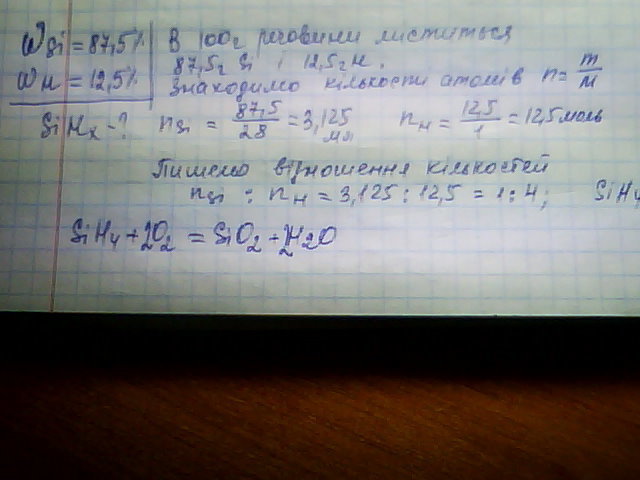 Wsi = 87,5% | В 100г речовини міститься
WH = 12,5% | 87,5г Si і 12,5г H.
Знаходимо кількости атомів n = m/M
SiHx - ? nsi = 87,5/28 = 3,125 мл nH = 12,5/1 = 12,5 моль
Пишемо відношення кількостей
nsi : nH = 3,125 : 12,5 = 1 : 4; SiH4
SiH4 + 2O2 = SiO2 + 2H2O